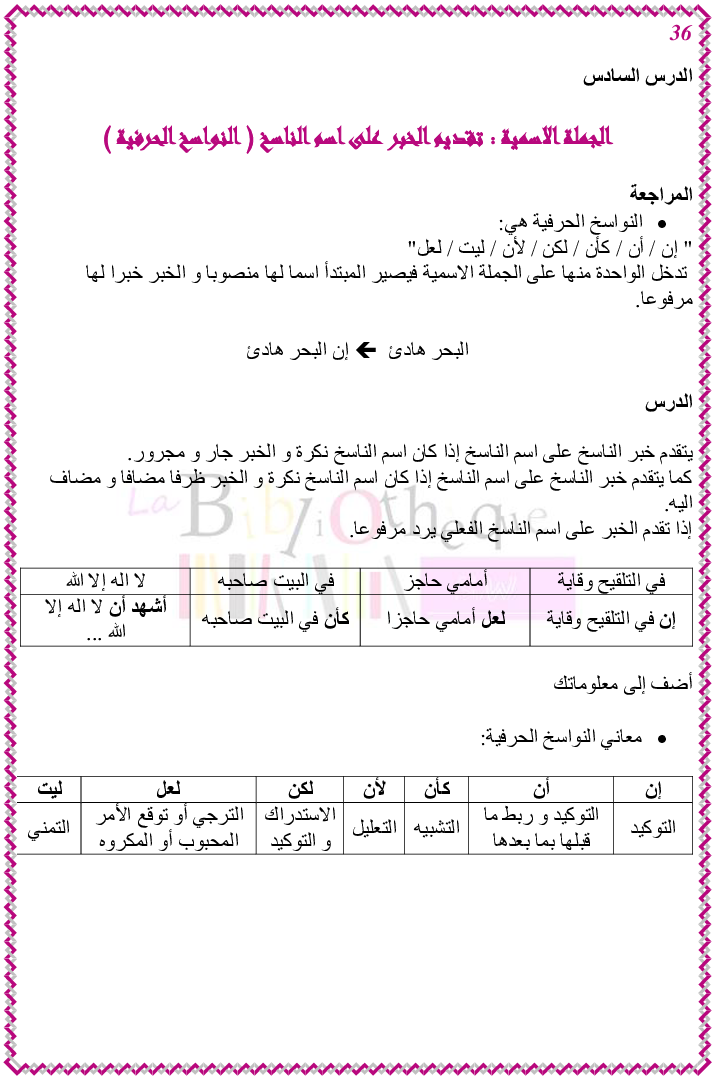 36
الدرس السادس
الجملة الاسمية : تقديم الخبر على اسم الناسخ ( النواسخ الحرفية )
المراجعة
• النواسخ الحرفية هي:
" إن / أن / كأن / لكن / لأن / ليت / لعل"
تدخل الواحدة منها على الجملة الاسمية فيصير المبتدأ اسما لها منصوبا و الخبر خبرا لها
مرفوعا.
البحر هادئ ← إن البحر هادئ
الدرس
يتقدم خبر الناسخ على اسم الناسخ إذا كان اسم الناسخ نكرة و الخبر جار و مجرور.
كما يتقدم خبر الناسخ على اسم الناسخ إذا كان اسم الناسخ نكرة و الخبر ظرفا مضافا و مضاف
اليه.
إذا تقدم الخبر على اسم الناسخ الفعلي يرد مرفوعا.
La BibliOtheque
في التلقيح وقاية أمامي حاجز في البيت صاحبه لا اله إلا الله
إن في التلقيح وقاية لعل أمامي حاجزا كأن في البيت صاحبه أشهد أن لا اله إلا
الله ...
أضف إلى معلوماتك
• معاني النواسخ الحرفية:
إن أن كأن لأن لكن لعل ليت
التوكيد التوكيد و ربط ما التشبيه التعليل الاستدراك الترجي أو توقع الأمر التمني
قبلها بما بعدها و التوكيد المحبوب أو المكروه